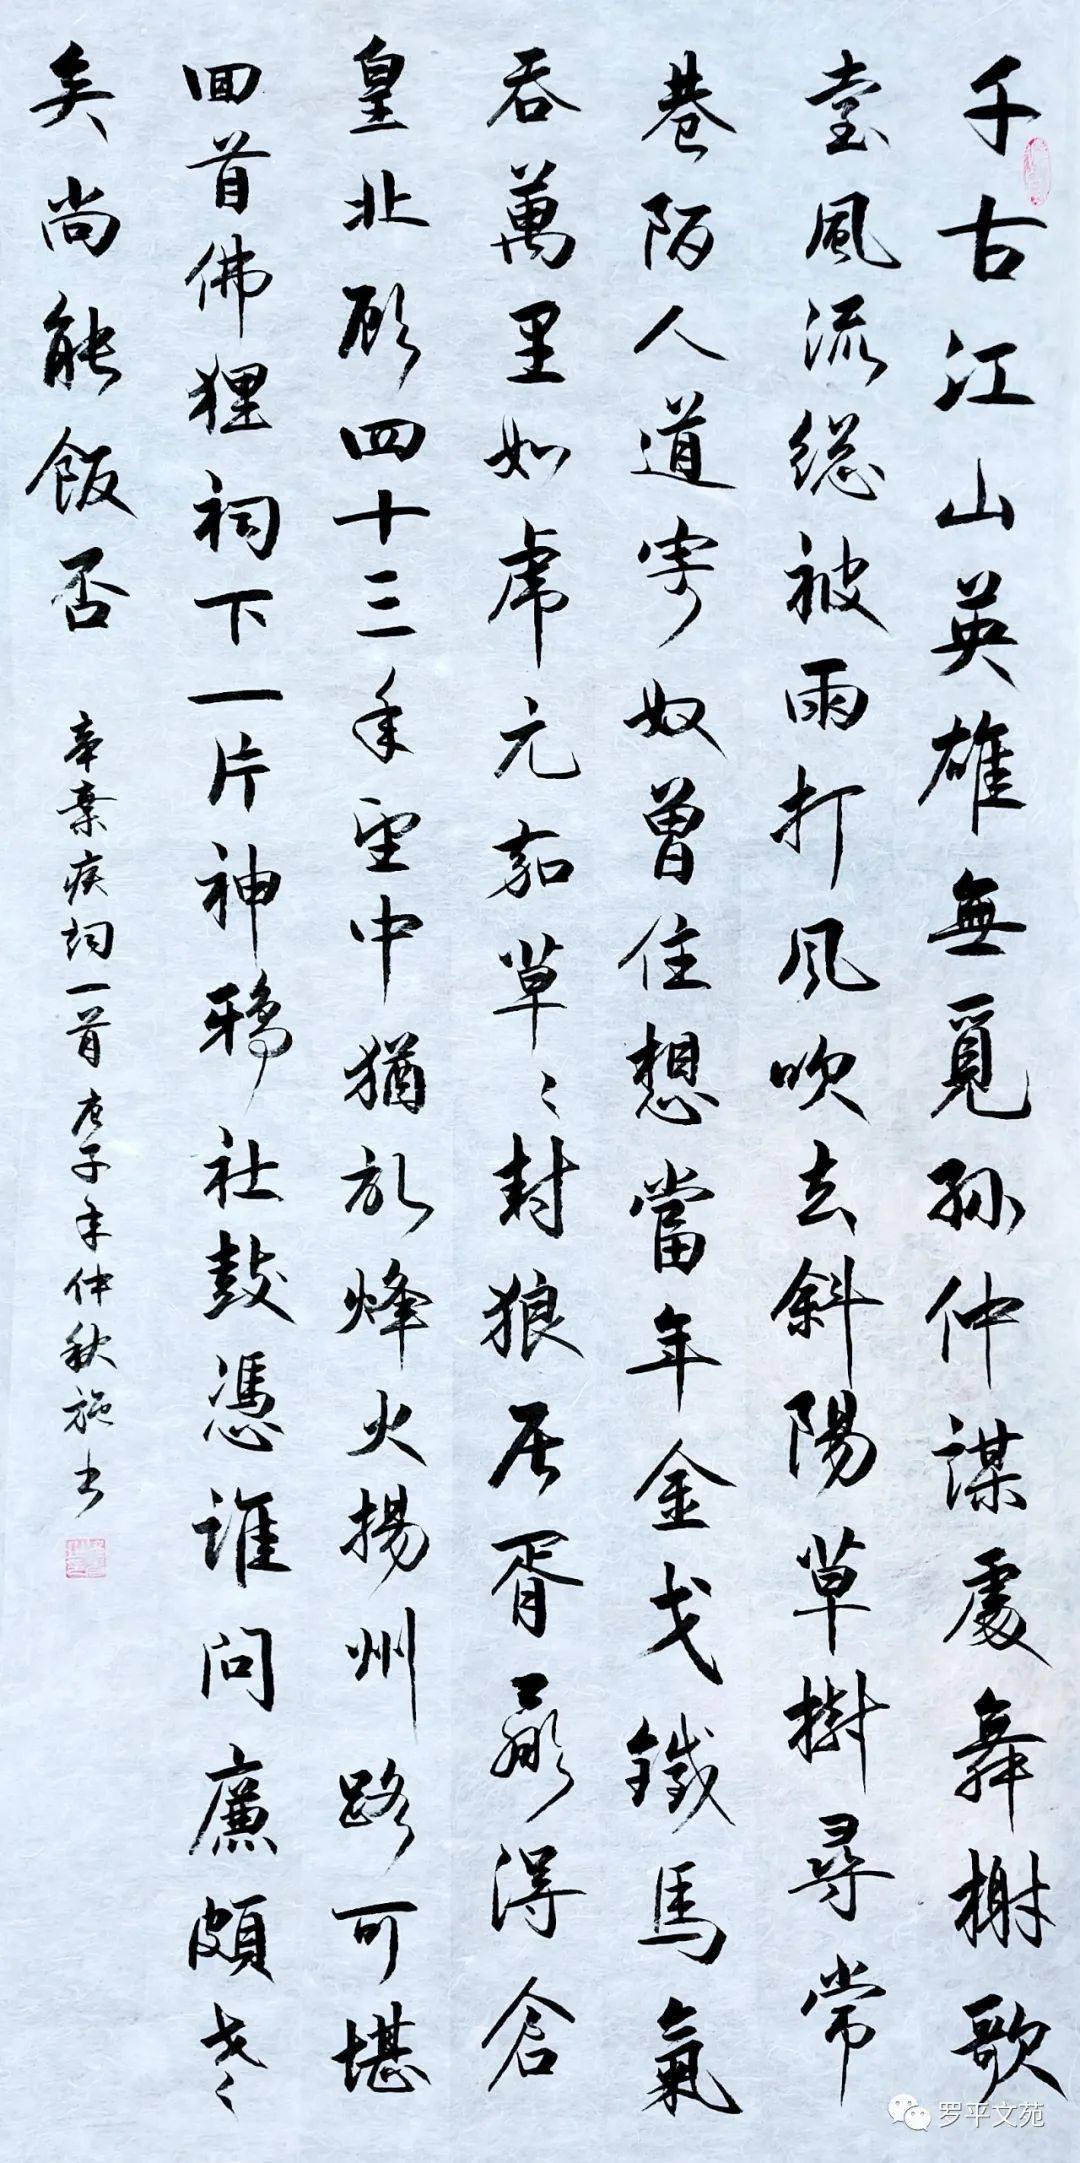 千古江山英雄無覓孫仲謀處舞榭歌
臺風流総被雨打風吹去斜陽草樹尋常
巷陌人道寄奴曾住想當年金戈鐵馬氣
吞萬里如虎元嘉草〻封狼居胥贏得倉
皇北顧四十三年望中猶於烽火揚州路可堪
回首佛狸祠下一片神鴉社鼓憑誰問廉頗老〻
矣尚能飯否
辛棄疾詞一首庚子年仲秋施書
罗平文苑